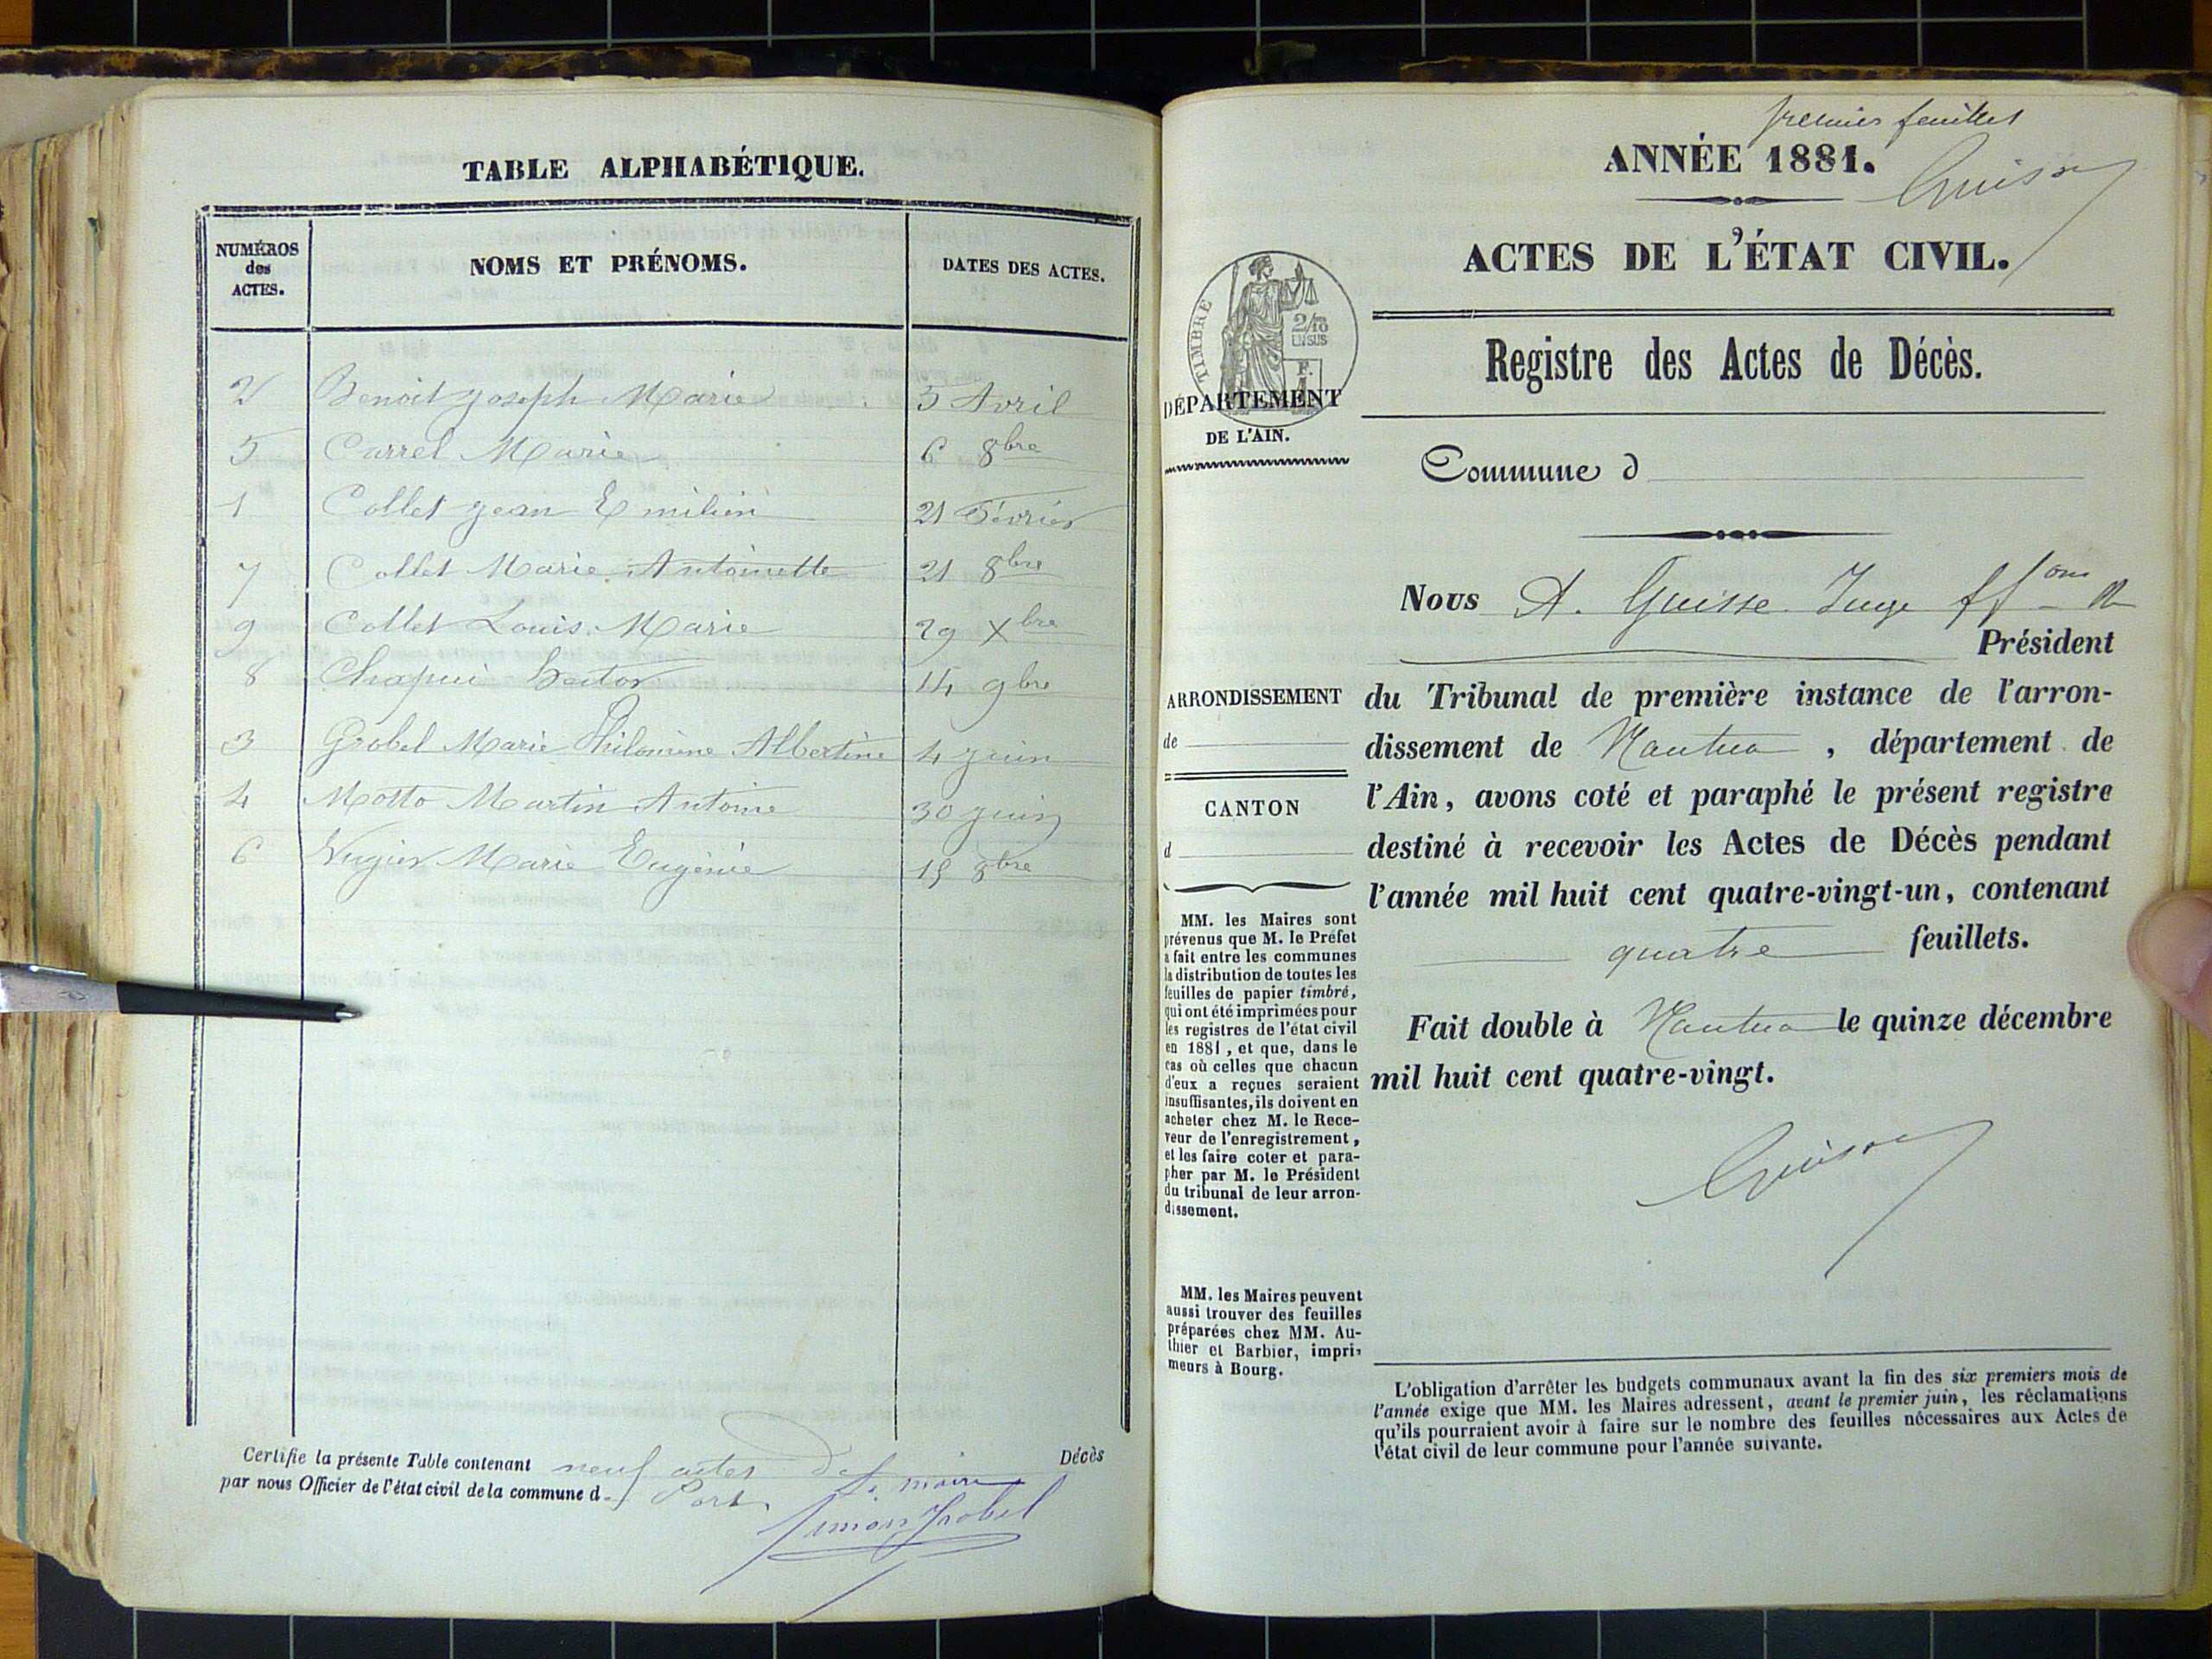 TABLE ALPHABÉTIQUE.
NUMÉROS
des
ACTES.
NOMS ET PRÉNOMS.
DATES DES ACTES.
2 Benoit Joseph Marie 5 Avril
5 Carrel Marie 6 8bre
1 Collet Jean Emilien 21 Février
7 Collet Marie Antoinette 21 8bre
9 Collet Louis Marie 29 Xbre
8 Chapui 14 9bre
3 Grobel Marie Philomène Albertine 4 Juin
4 Motto Martin Antoine 30 Juin
6 Nugier Marie Eugénie 8bre
Certifie la présente Table contenant neuf actes de Décès
par nous Officier de l'état civil de la commune d Port
Le maire
Simon Grobel
premier feuillet
ANNÉE 1881.
ACTES DE L'ÉTAT CIVIL.
TIMBRE
2/10
EN SUS
Registre des Actes de Décès.
DÉPARTEMENT
DE L'AIN.
Commune d
Nous A. Guisse Juge
Président
ARRONDISSEMENT
de
CANTON
d
du Tribunal de première instance de l'arron-
dissement de Nantua, département de
l'Ain, avons coté et paraphé le présent registre
destiné à recevoir les Actes de Décès pendant
l'année mil huit cent quatre-vingt-un, contenant
quatre feuillets.
Fait double à Nantua le quinze décembre
mil huit cent quatre-vingt.
MM. les Maires sont
prévenus que M. le Préfet
a fait entre les communes
la distribution de toutes les
feuilles de papier timbré,
qui ont été imprimées pour
les registres de l'état civil
en 1881, et que, dans le
cas où celles que chacun
d'eux a reçues seraient
insuffisantes, ils doivent en
acheter chez M. le Rece-
veur de l'enregistrement,
et les faire coter et para-
pher par M. le Président
du tribunal de leur arron-
dissement.
MM. les Maires peuvent
aussi trouver des feuilles
préparées chez MM. Au-
thier et Barbier, impri-
meurs à Bourg.
L'obligation d'arrêter les budgets communaux avant la fin des six premiers mois de
l'année exige que MM. les Maires adressent, avant le premier juin, les réclamations
qu'ils pourraient avoir à faire sur le nombre des feuilles nécessaires aux Actes de
l'état civil de leur commune pour l'année suivante.